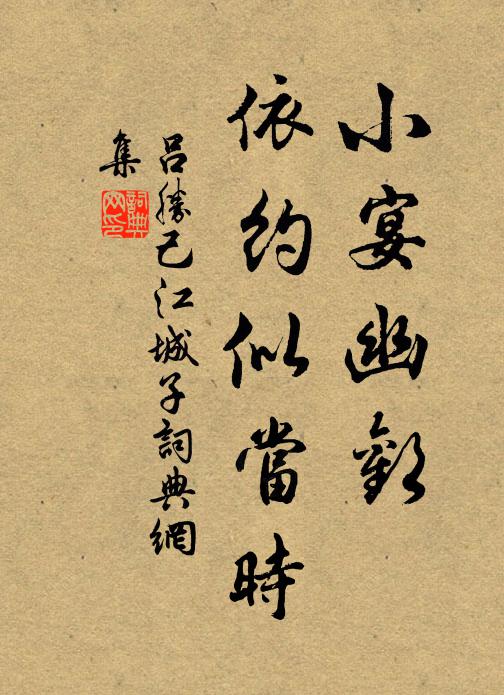 小宴幽歡
依約似當時
呂勝己江城子詞典網
集
詞典網印